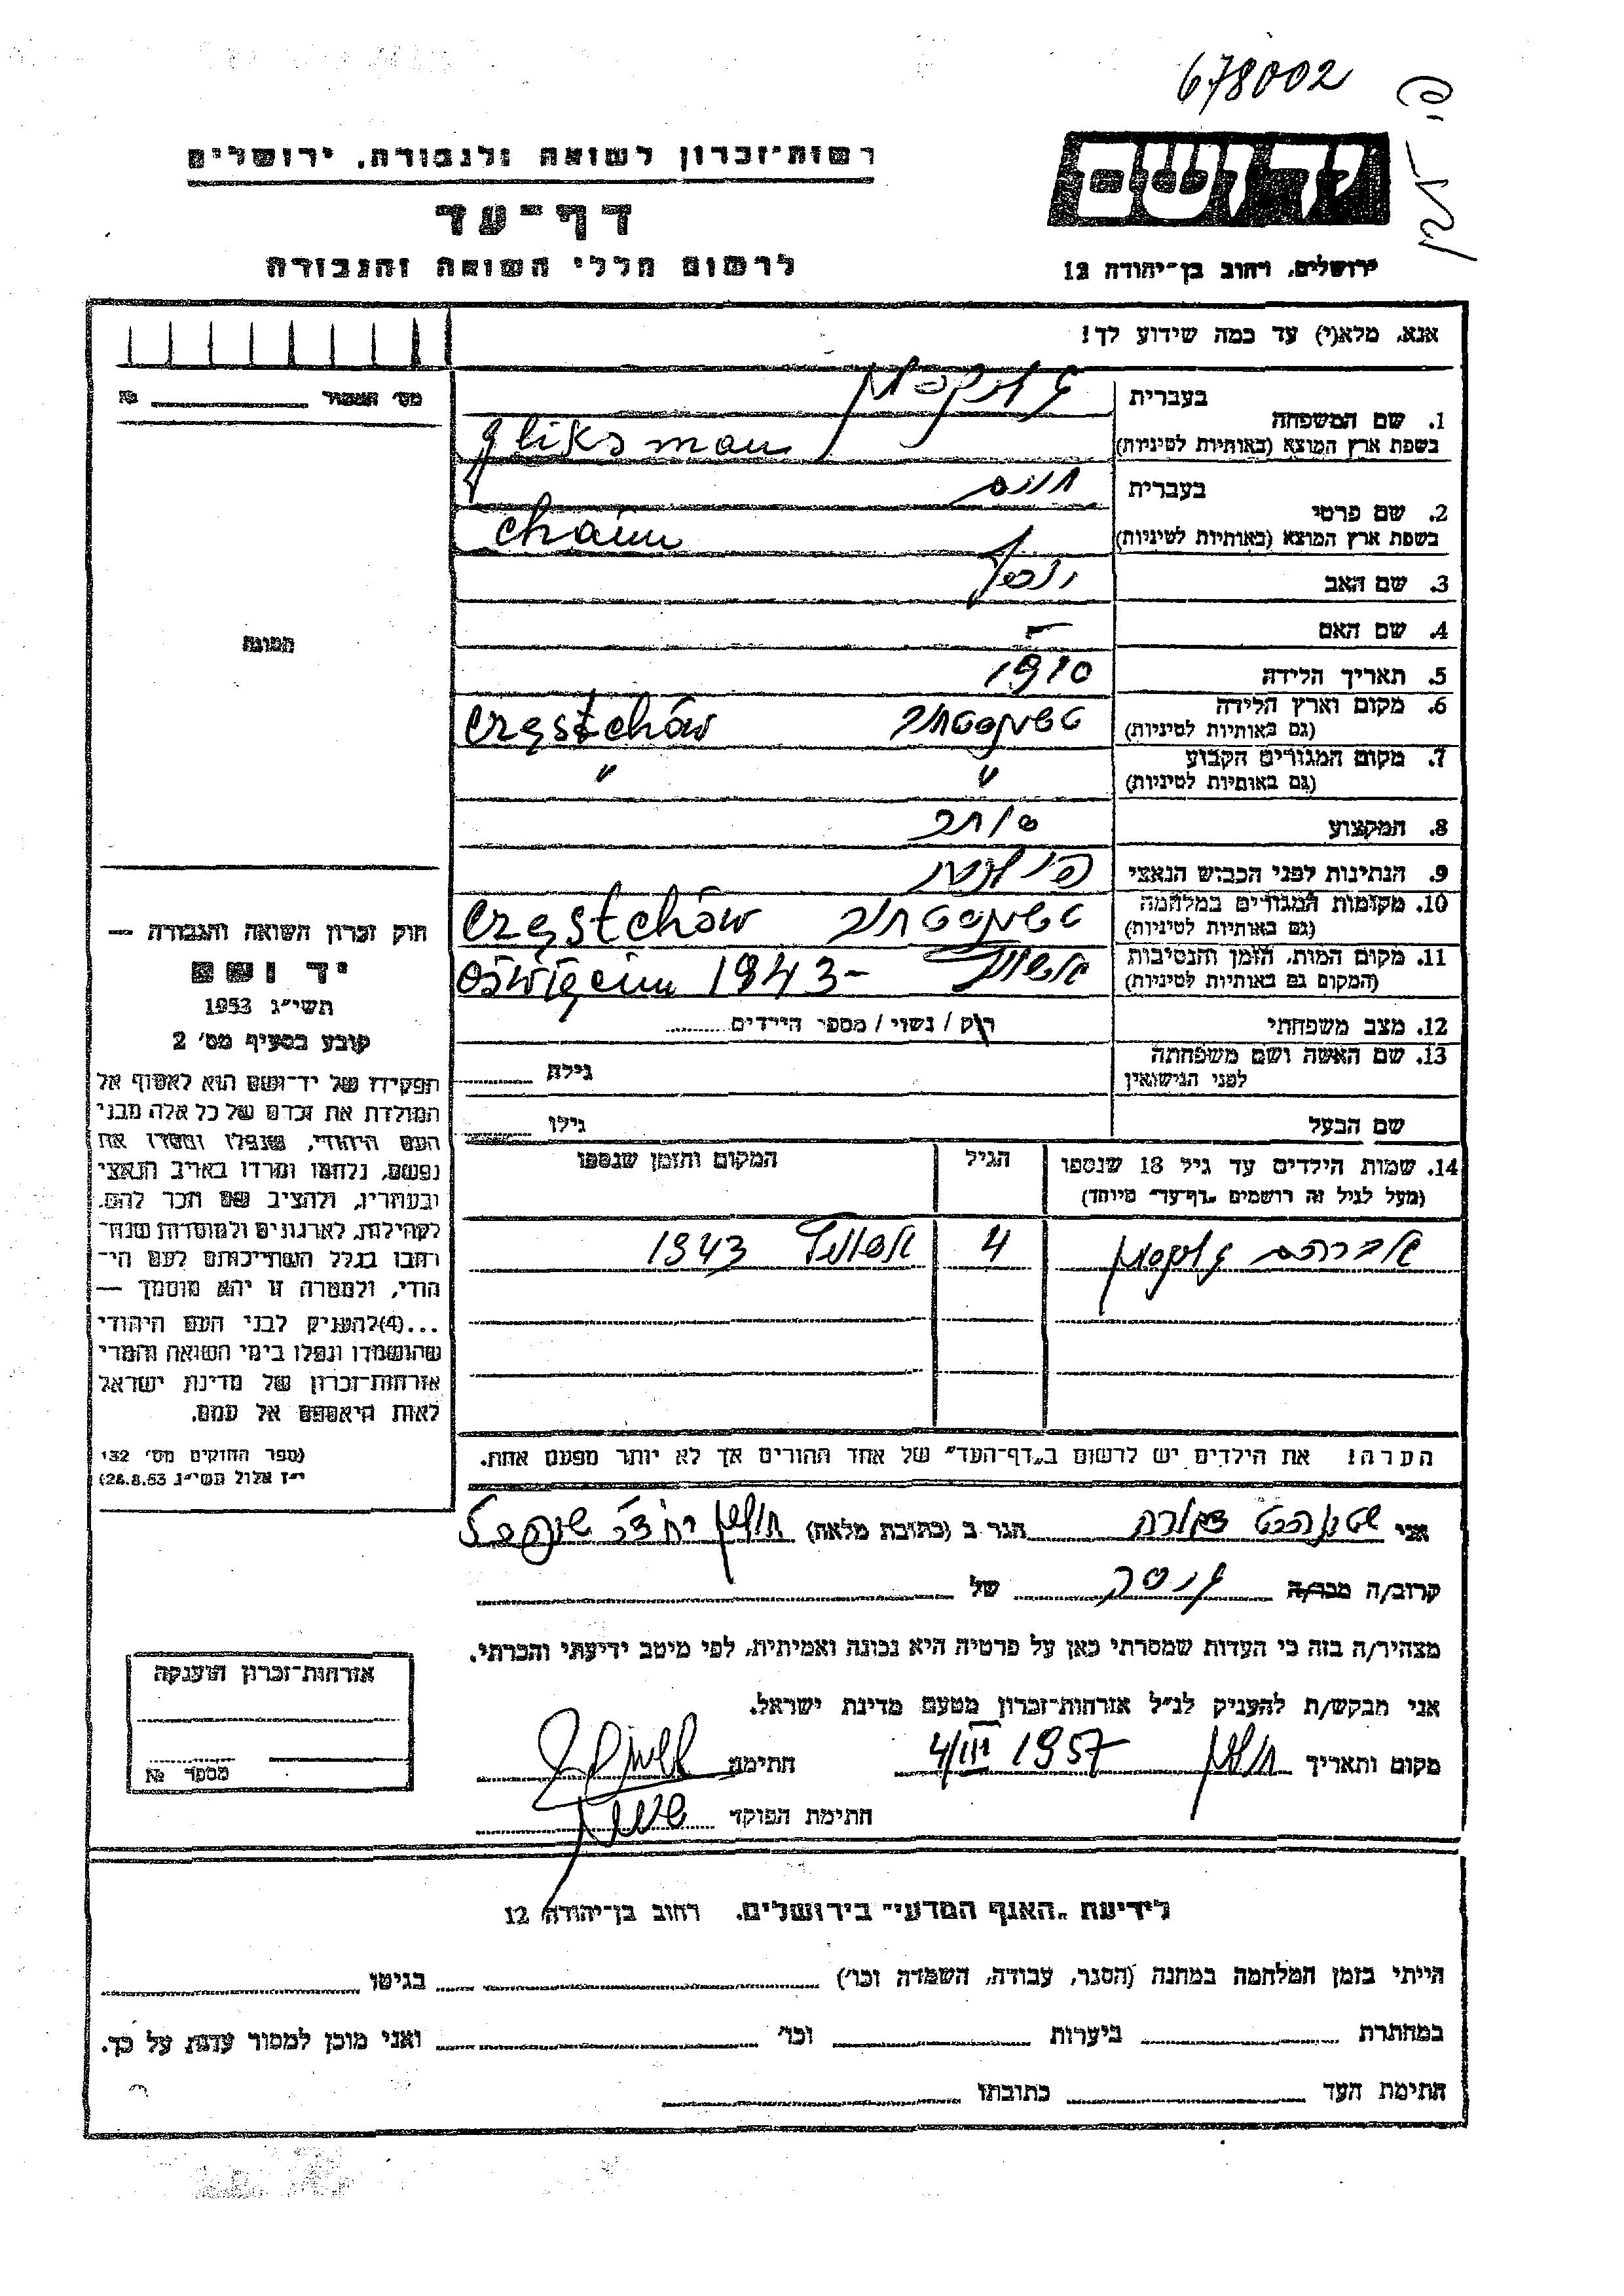 678002
רשות־זכרון לשואה ולגבורה, ירושלים
דף־עד
לרשום חללי השואה והגבורה
ירושלים, רחוב בן־יהודה 12
אנא, מלא(י) עד כמה שידוע לך!
מס' המפקד № 
1. שם המשפחה
בעברית גליקסמן
בשפת ארץ המוצא (באותיות לטיניות) gliksman
2. שם פרטי
בעברית חיים
בשפת ארץ המוצא (באותיות לטיניות) chaim
3. שם האב יוסף
4. שם האם —
5. תאריך הלידה 1910
6. מקום וארץ הלידה
(גם באותיות לטיניות) טשנסטחוב Częstchów
7. מקום המגורים הקבוע
(גם באותיות לטיניות) " "
8. המקצוע סוחר
9. הנתינות לפני הכבוש הנאצי
10. מקומות המגורים במלחמה
(גם באותיות לטיניות) טשנסטחוב Częstchów
11. מקום המות, הזמן והנסיבות
(המקום גם באותיות לטיניות) אושויץ Oświęcim 1943-
12. מצב משפחתי רוק / נשוי / מספר הילדים
13. שם האשה ושם משפחתה
לפני הנישואין גילה
שם הבעל גילו
14. שמות הילדים עד גיל 18 שנספו הגיל המקום והזמן שנספו
(מעל לגיל זה רושמים „דף־עד" מיוחד)
אברהם גליקסמן 4 אושויץ 1943
הערה! את הילדים יש לרשום ב„דף־העד" של אחד ההורים אך לא יותר מפעם אחת.
תמונה
חוק זכרון השואה והגבורה —
יד ושם
תשי"ג 1953
קובע בסעיף מס' 2
תפקידו של יד־ושם הוא לאסוף אל
המולדת את זכרם של כל אלה מבני
העם היהודי, שנפלו ומסרו את
נפשם, נלחמו ומרדו באויב הנאצי
ובעוזריו, ולהציב שם וזכר להם,
לקהילות, לארגונים ולמוסדות שנח־
רבו בגלל השתייכותם לעם הי־
הודי, ולמטרה זו יהא מוסמך —
...(4) להעניק לבני העם היהודי
שהושמדו ונפלו בימי השואה והמרי
אזרחות־זכרון של מדינת ישראל
לאות היאספם אל עמם.
(ספר החוקים מס' 132
י"ז אלול תשי"ג 28.8.53)
אני הגר ב (כתובת מלאה) חולון
קרוב/ה מכר/ה גיסה של
מצהיר/ה בזה כי העדות שמסרתי כאן על פרטיה היא נכונה ואמיתית, לפי מיטב ידיעתי והכרתי.
אני מבקש/ת להעניק לנ"ל אזרחות־זכרון מטעם מדינת ישראל.
מקום ותאריך חולון 4/III 1957 חתימה
חתימת הפוקד
אזרחות־זכרון הוענקה
מספר №
לידיעת „האגף המדעי" בירושלים, רחוב בן־יהודה 12
הייתי בזמן המלחמה במחנה (הסגר, עבודה, השמדה וכו') בגיטו
במחתרת ביערות וכו' ואני מוכן למסור עדות על כך.
חתימת העד כתובתו